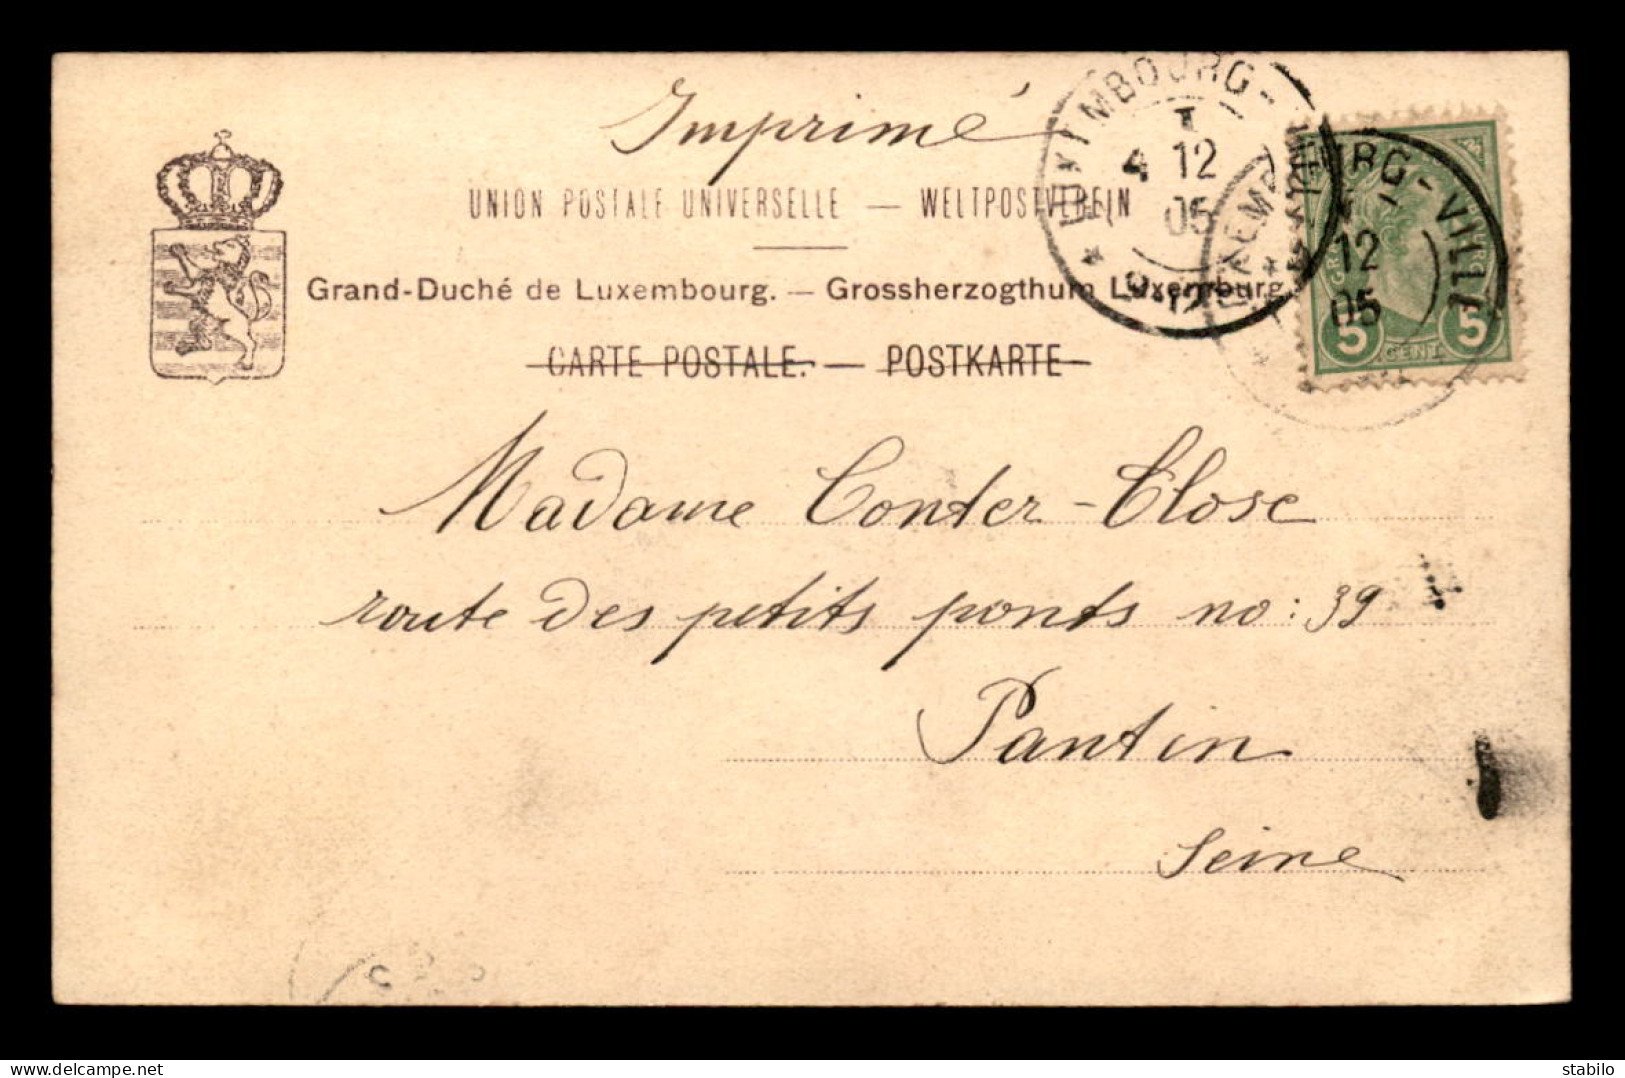 Imprimé
UNION POSTALE UNIVERSELLE — WELTPOSTVEREIN
Grand-Duché de Luxembourg. — Grossherzogthum Luxemburg.
CARTE POSTALE. — POSTKARTE
LUXEMBOURG-
4 12
05
9-12
LUXEMBOURG-VILLE
12
05
5 CENT. 5
Madame Conter-Close
route des petits ponts no: 39
Pantin
Seine
delcampe.net
stabilo